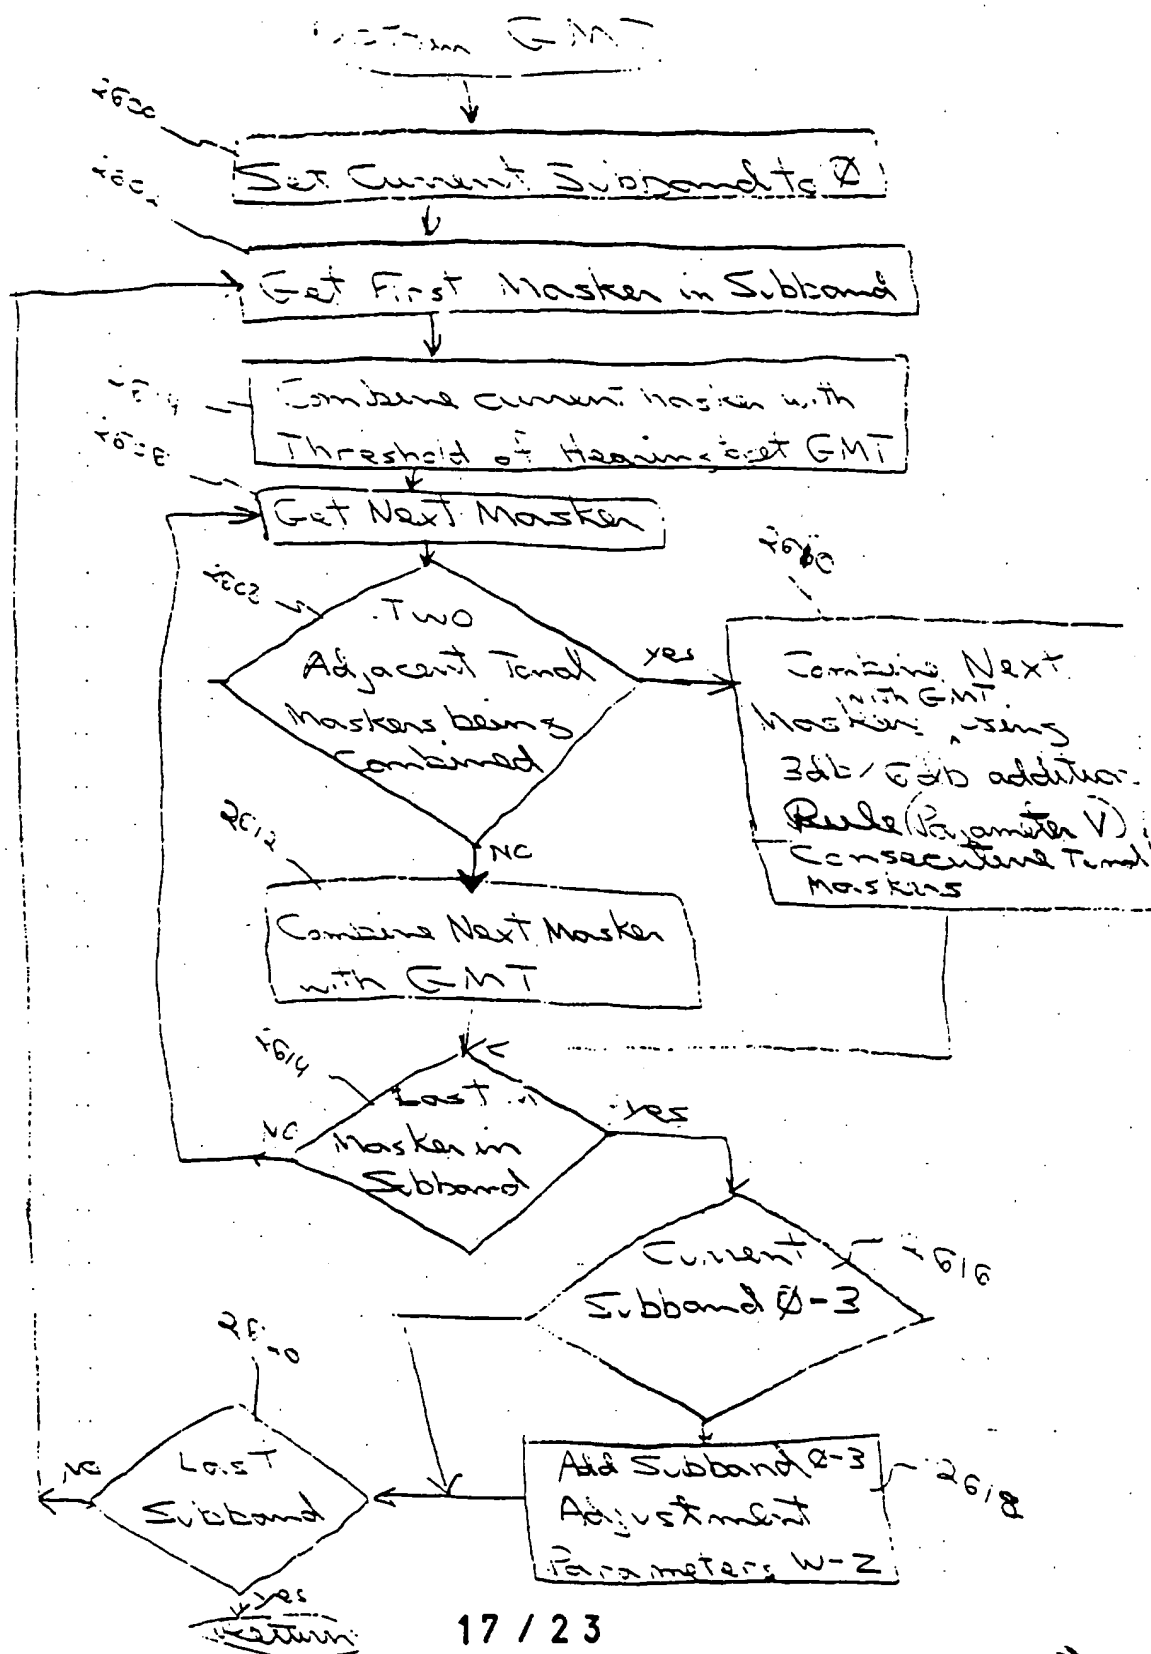 GMT
Set Current Subband to Ø
Get First Masker in Subband
Combine current masker with
Threshold of Hearing, get GMT
Get Next Masker
Two
Adjacent Tonal
Maskers being
Combined
yes
Combine Next
with GMT
Masker using
3db/6db addition
Rule (Parameter V)
Consecutive Tonal
Maskers
NO
2612
Combine Next Masker
with GMT
2614
Last
Masker in
Subband
yes
NO
Current
Subband Ø-3
2616
Add Subband Ø-3
Adjustment
Parameters W-Z
2618
Last
Subband
NO
yes
Return
17/23